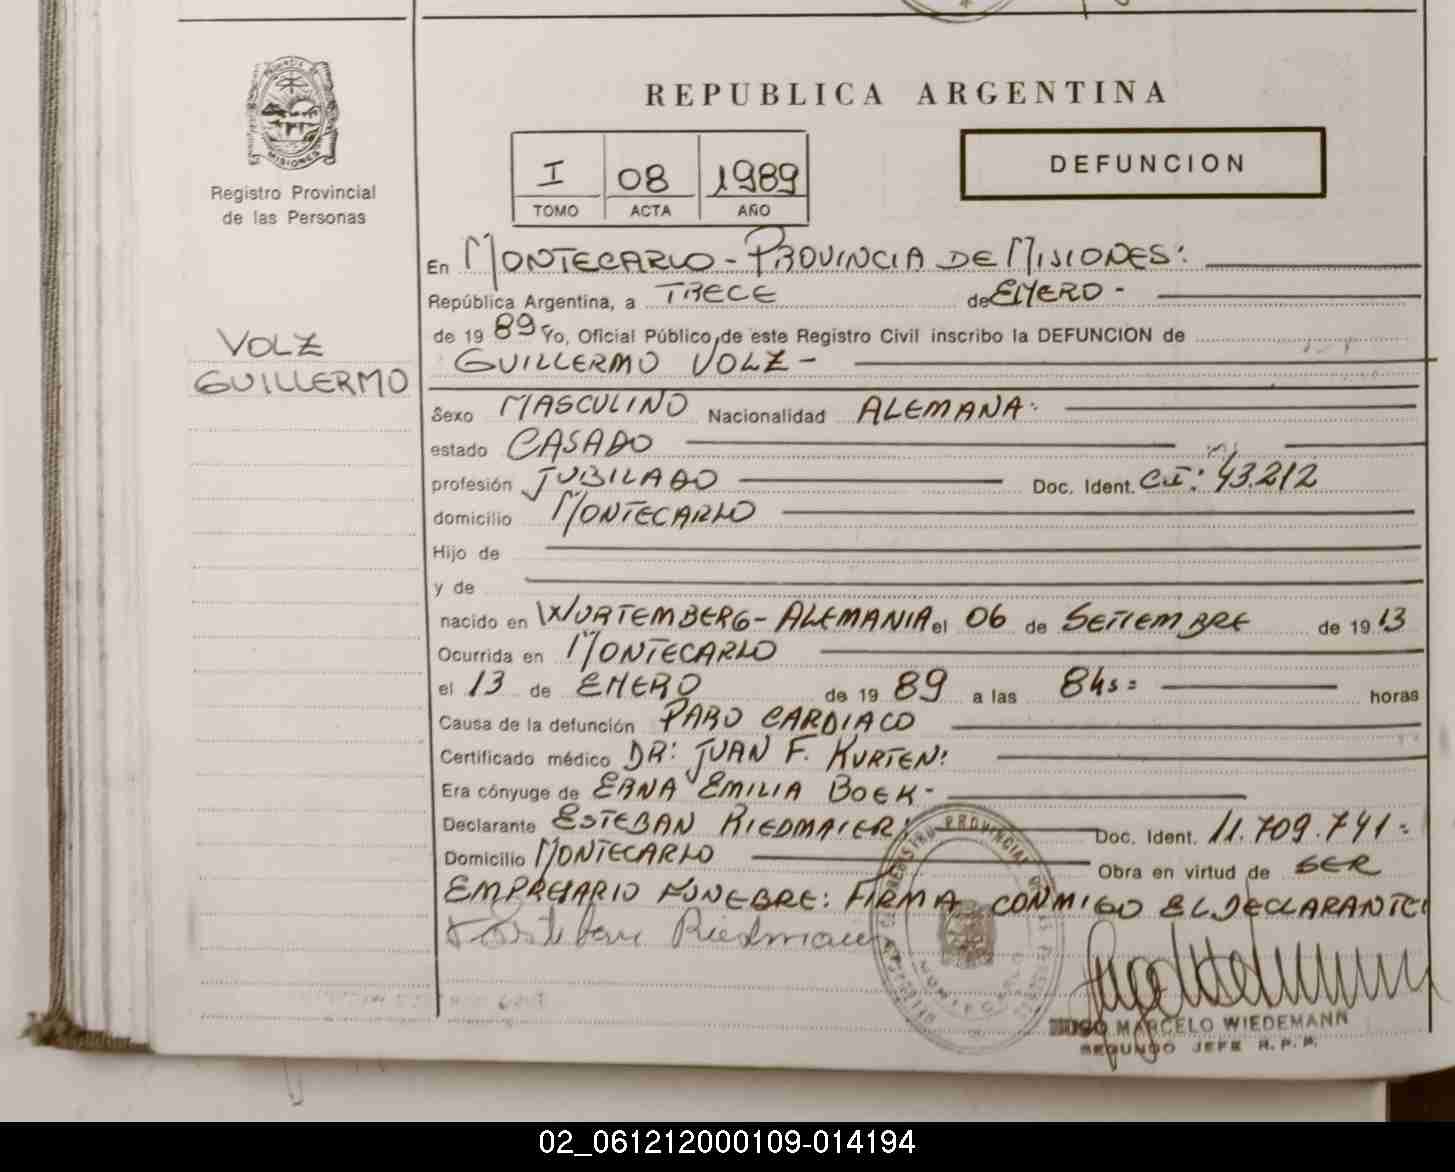 REPUBLICA ARGENTINA
PROVINCIA DE
MISIONES
Registro Provincial
de las Personas
I 08 1989
TOMO ACTA AÑO
DEFUNCION
VOLZ
GUILLERMO
En MONTECARLO - PROVINCIA DE MISIONES:
República Argentina, a TRECE de ENERO -
de 19 89 Yo, Oficial Público de este Registro Civil inscribo la DEFUNCION de
GUILLERMO VOLZ -
Sexo MASCULINO Nacionalidad ALEMANA:
estado CASADO
profesión JUBILADO Doc. Ident. C.I: 43.212
domicilio MONTECARLO
Hijo de
y de
nacido en WURTEMBERG - ALEMANIA el 06 de SETIEMBRE de 19 13
Ocurrida en MONTECARLO
el 13 de ENERO de 19 89 a las 8hs= horas
Causa de la defunción PARO CARDIACO
Certificado médico DR: JUAN F. KURTEN:
Era cónyuge de ERNA EMILIA BOEK -
Declarante ESTEBAN RIEDMAIER: Doc. Ident. 11.709.741=
Domicilio MONTECARLO Obra en virtud de SER
EMPRESARIO FUNEBRE: FIRMA CONMIGO EL DECLARANTE:
Esteban Riedmaier
REGISTRO PROVINCIAL DE LAS PERSONAS
HUGO MARCELO WIEDEMANN
SEGUNDO JEFE R.P.P.
02_061212000109-014194